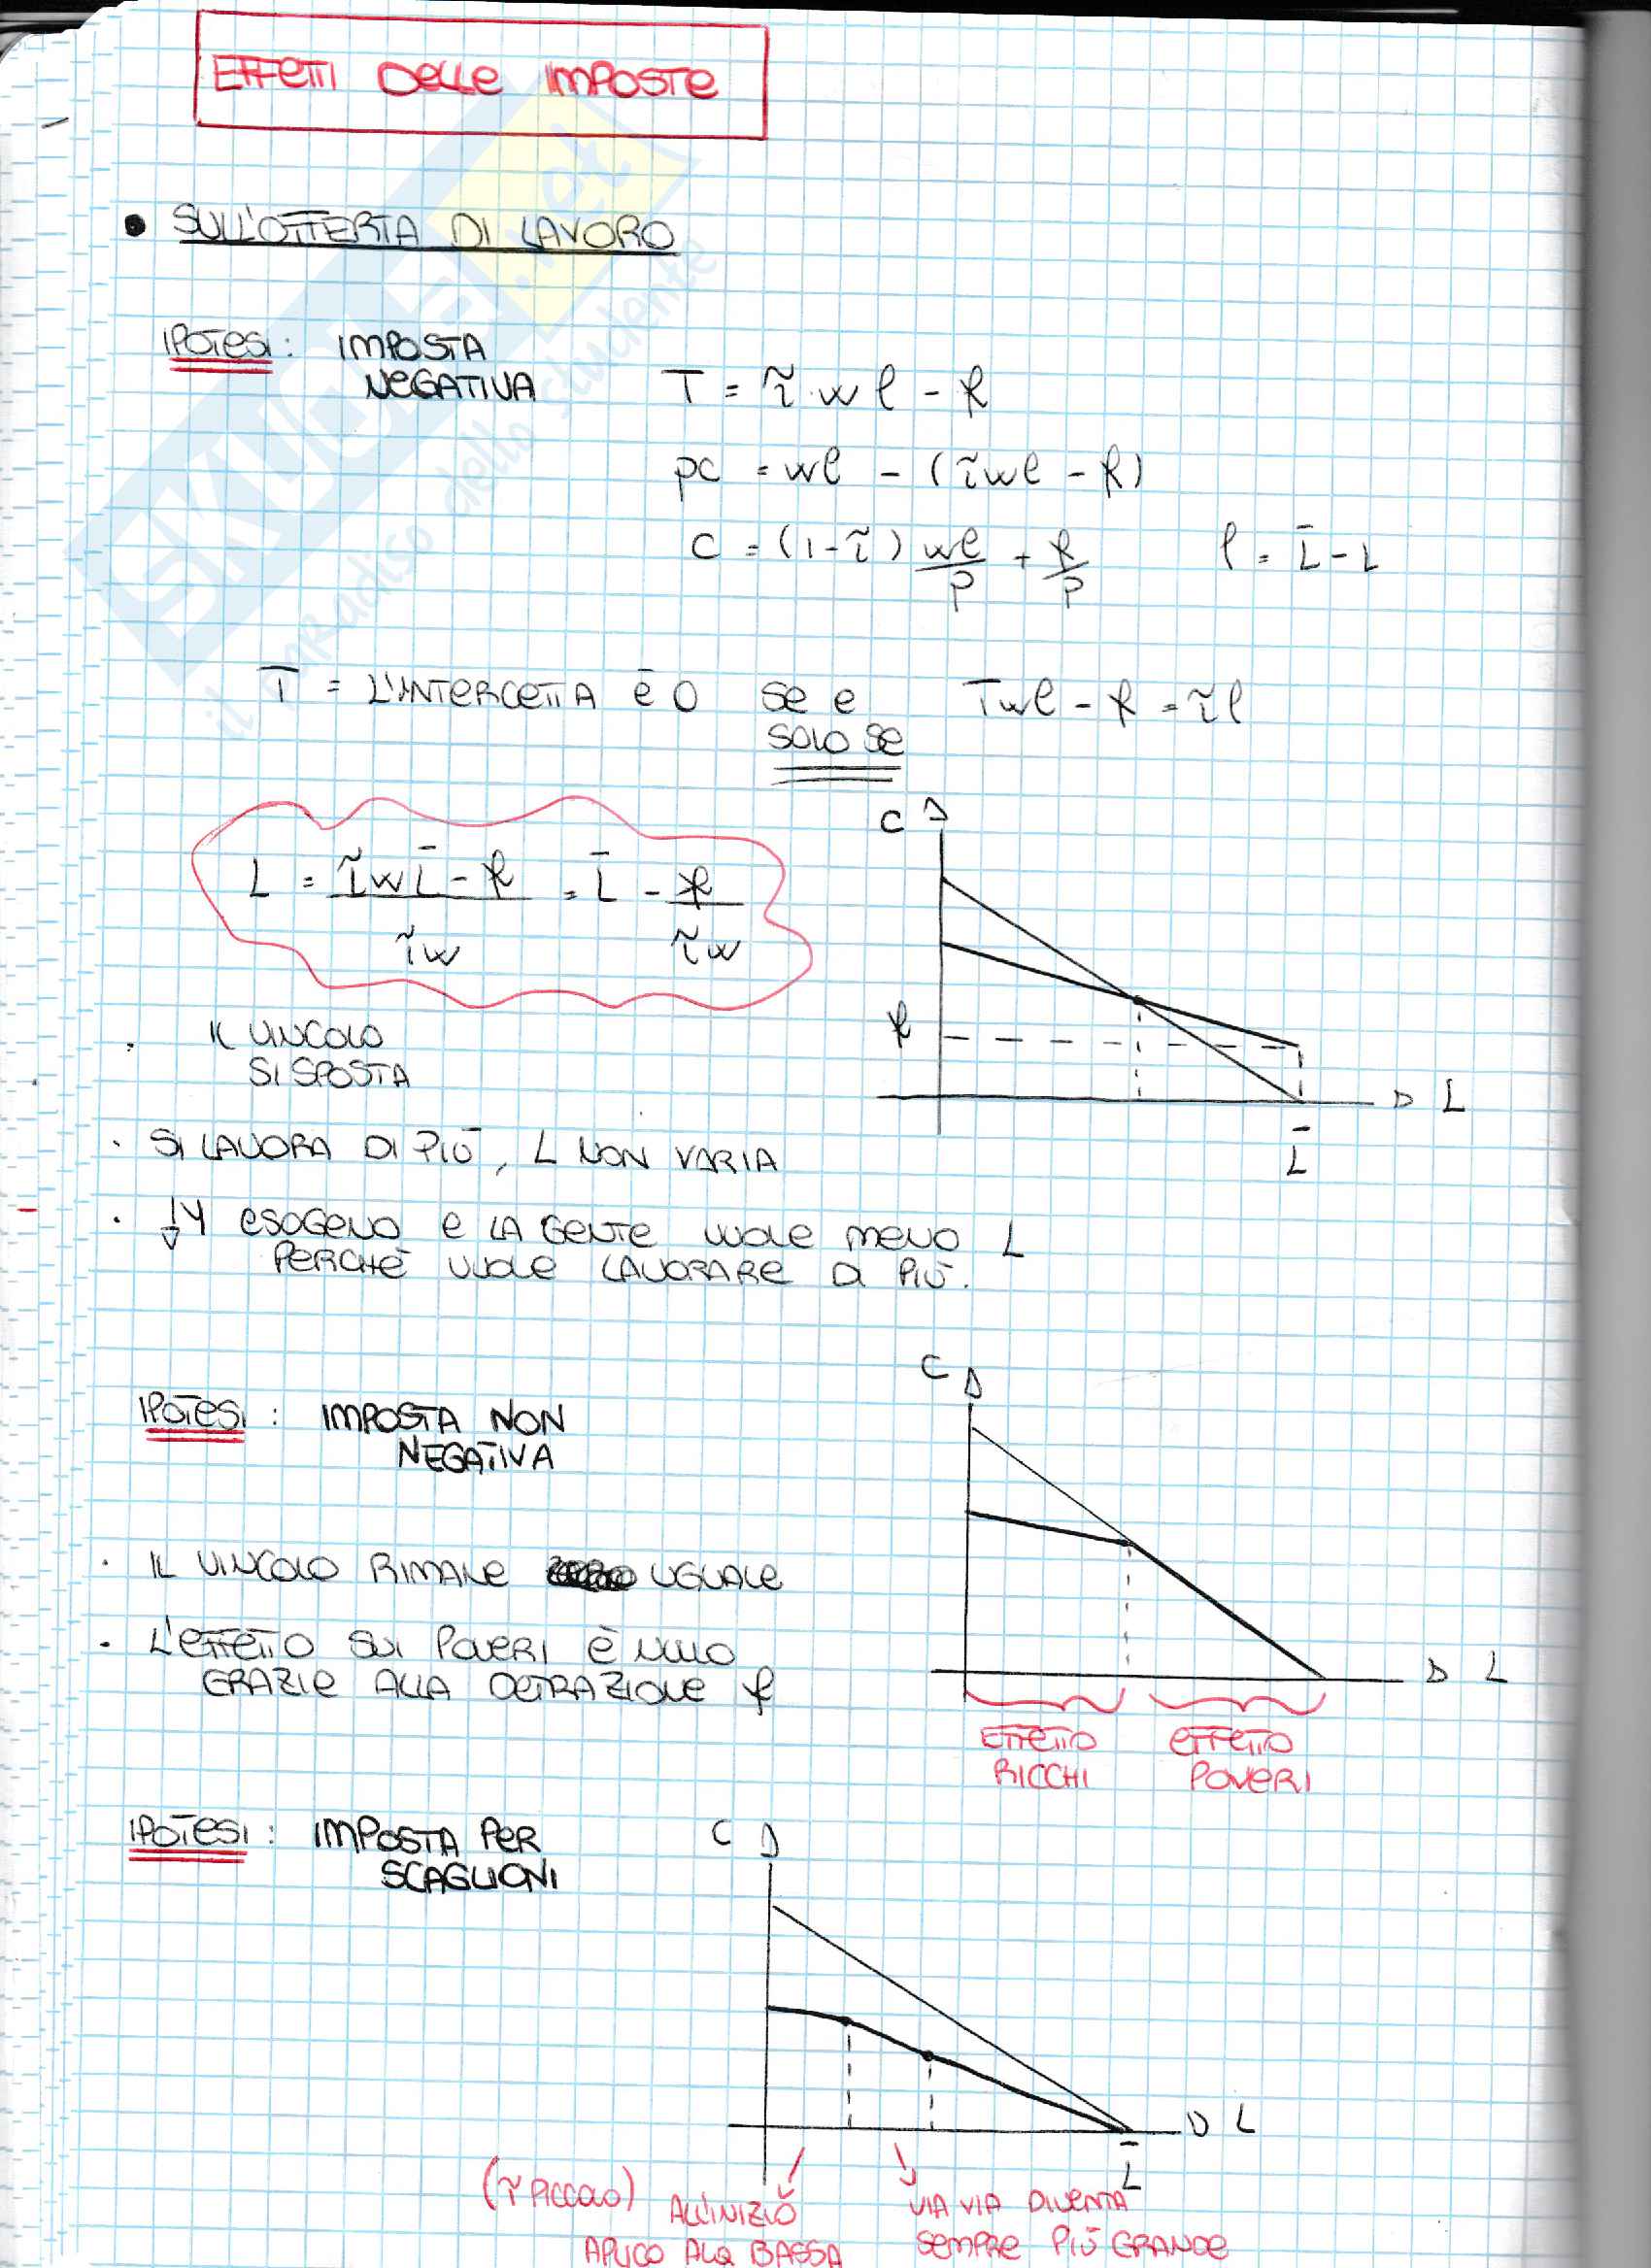 EFFETTI DELLE IMPOSTE
• SULL'OFFERTA DI LAVORO
IPOTESI: IMPOSTA
NEGATIVA
T = τ̃·wℓ - f
pc = wℓ - (τ̃wℓ - f)
C = (1-τ̃) wℓ/P + f/P ℓ = L̄ - L
T = L'INTERCETTA È 0 SE E
SOLO SE
Twℓ - f = τ̃ℓ
L = (τ̃wL̄ - f)/τ̃w = L̄ - f/τ̃w
C
f
L
L̄
· IL VINCOLO
SI SPOSTA
· SI LAVORA DI PIÙ, L NON VARIA
· ↓Y ESOGENO E LA GENTE VUOLE MENO L
PERCHÈ VUOLE LAVORARE DI PIÙ.
IPOTESI: IMPOSTA NON
NEGATIVA
C
· IL VINCOLO RIMANE UGUALE
· L'EFFETTO SUI POVERI È NULLO
GRAZIE ALLA DETRAZIONE f
L
EFFETTO
RICCHI
EFFETTO
POVERI
IPOTESI: IMPOSTA PER
SCAGLIONI
C
L
L̄
(τ PICCOLO) ALL'INIZIO
APLICO ALQ BASSA
VIA VIA DIVENTA
SEMPRE PIÙ GRANDE
SKUOLA.net
il paradiso dello studente